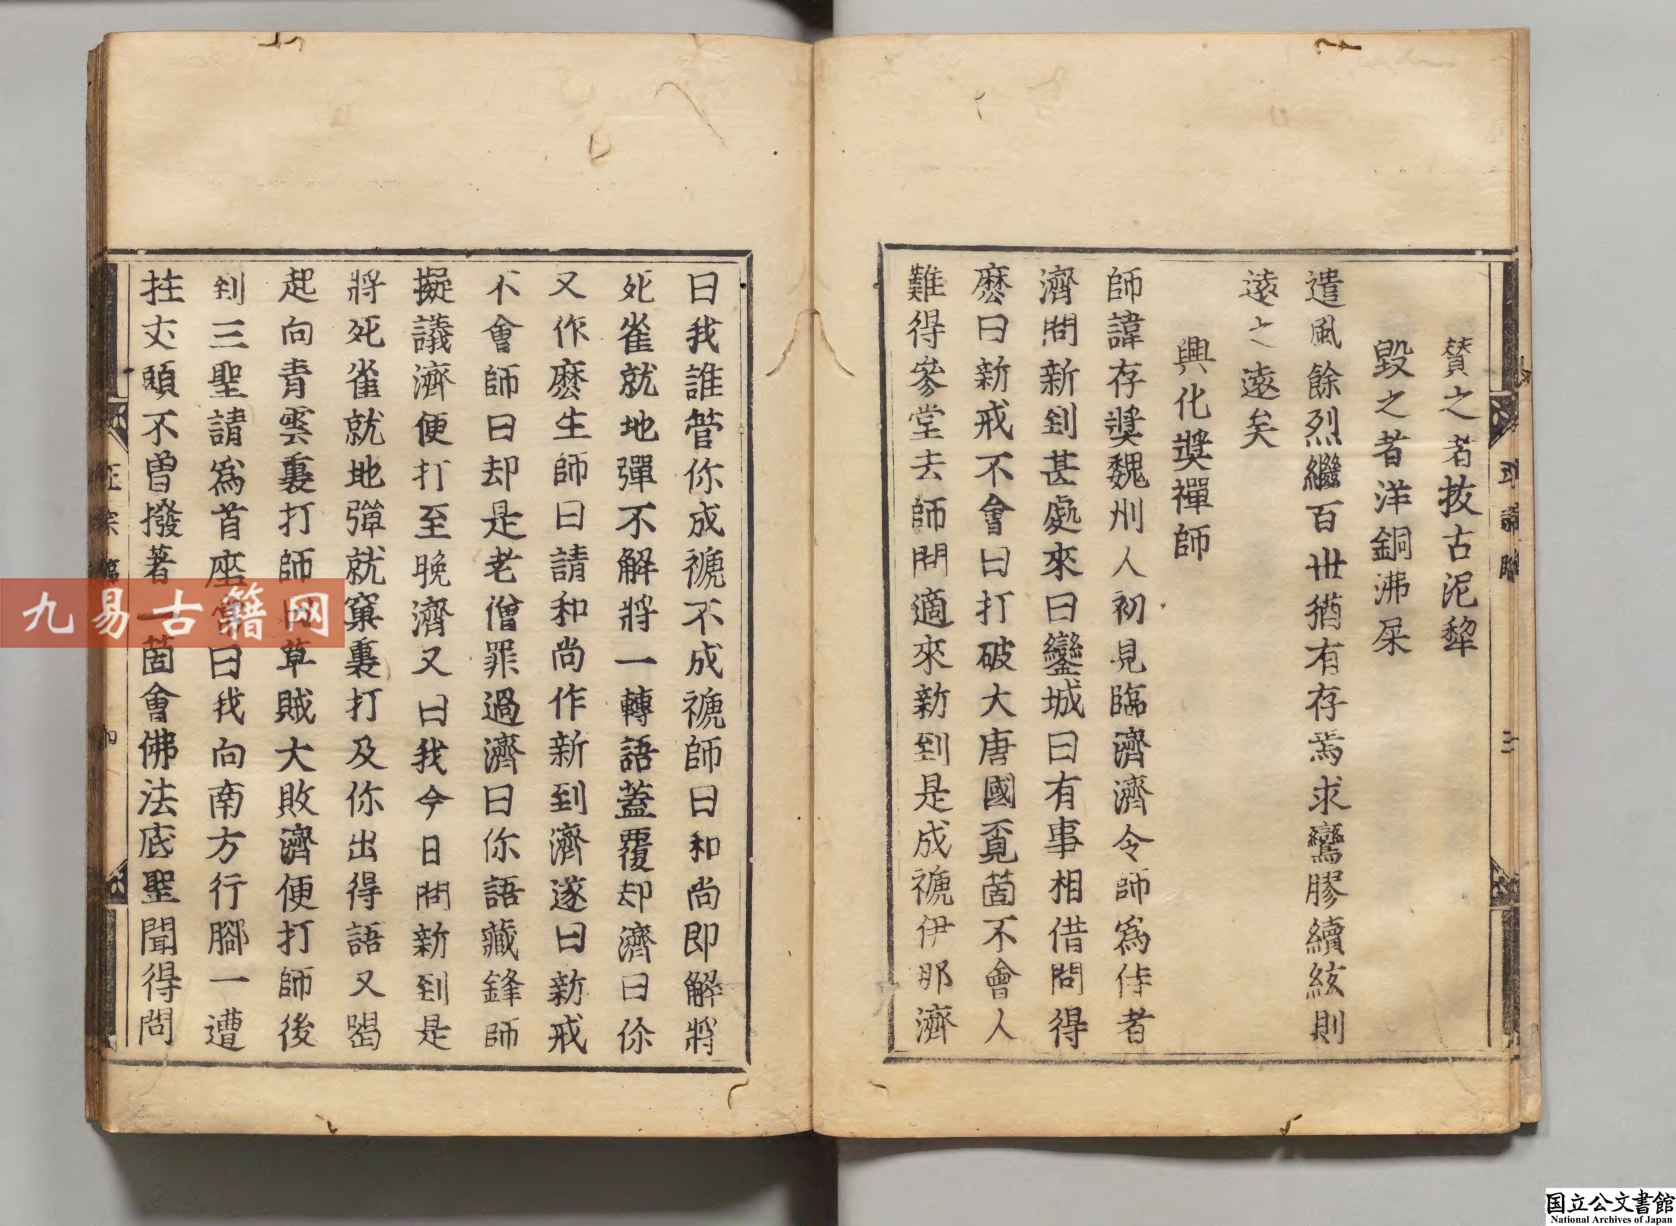 賛之者拔古泥犂
毀之者洋銅沸屎
遣風餘烈繼百丗猶有存焉求鸞膠續絃則
遠之遠矣
興化奬禪師
師諱存奬魏州人初見臨濟濟令師爲侍者
濟問新到甚處來曰鑾城曰有事相借問得
麽曰新戒不會曰打破大唐國覔箇不會人
難得參堂去師問適來新到是成禠伊那濟
曰我誰管你成禠不成禠師曰和尚即解將
死雀就地彈不解將一轉語蓋覆却濟曰你
又作麽生師曰請和尚作新到濟遂曰新戒
不會師曰却是老僧罪過濟曰你語藏鋒師
擬議濟便打至晚濟又曰我今日問新到是
將死雀就地彈就窠裏打及你出得語又喝
起向青雲裏打師曰草賊大敗濟便打師後
到三聖請爲首座常曰我向南方行脚一遭
拄丈頭不曾撥著一箇會佛法底聖聞得問
九易古籍网
国立公文書館
National Archives of Japan